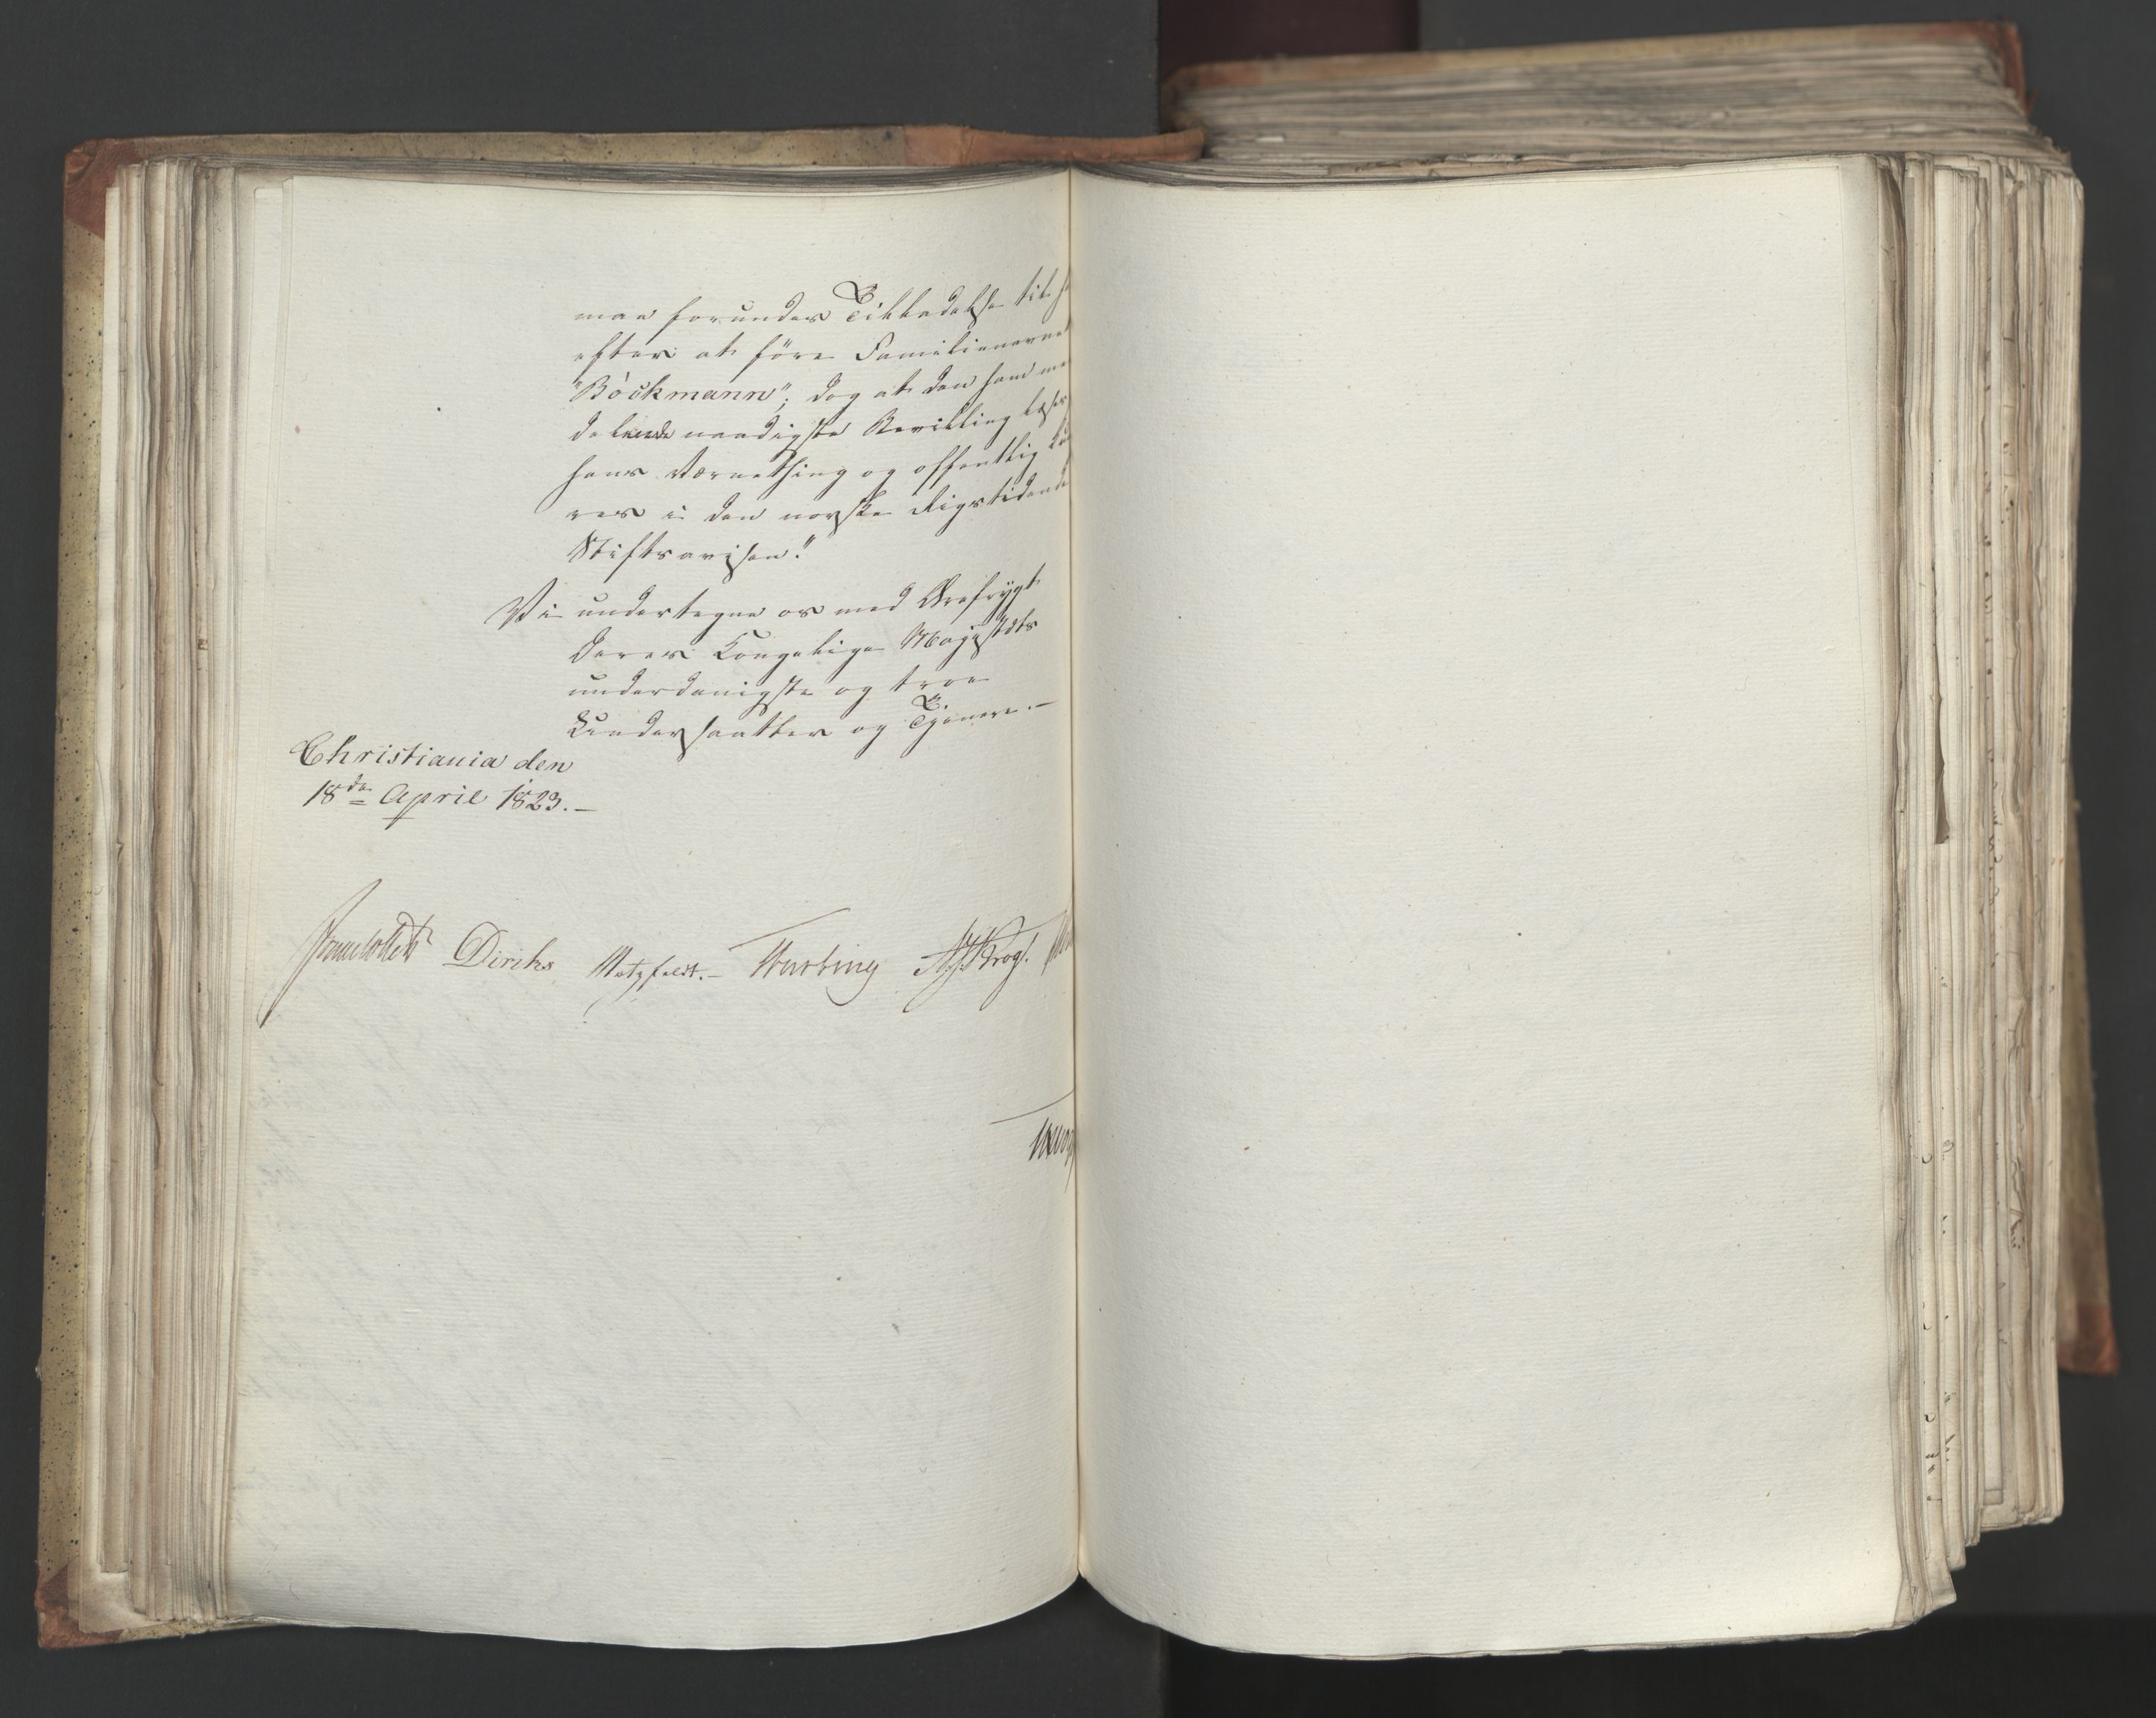 maa forundes Tilladelse til h
efter at före Familienavne
"Böckmann"; dog at den ham me
delende naadigste Bevilling læses
hans Værnething og offentlig
res i den norske Rigstidende
Stiftsavisen."
Vi undertegne os med Ærefrygt
Deres Kongelige Majestæts
underdanigste og troe
Undersaatter og Tjenere.-
Christiania den
18de April 1823.-
Diriks Motzfeldt.- Krog.